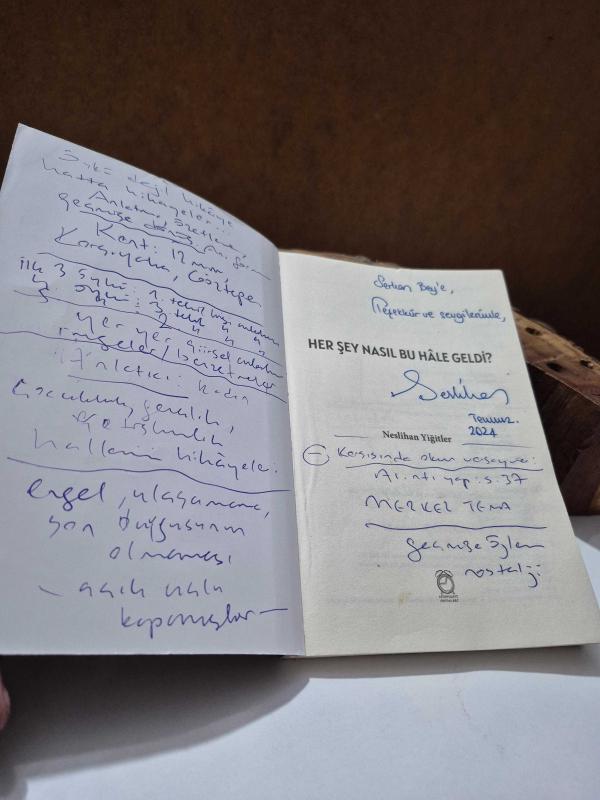 Öykü değil hikâye
hatta hikâyeler...
Anlatım, özetleme,
geçmişe dönüş
Kent: İzmir
Karşıyaka, Göztepe
İlk 3 öykü: 1. tekil
4. öykü: 3. tekil " "
5 " : 2 " " "
yer yer şiirsel anlatım
imgeler/benzetmeler
Anlatıcı: kadın
Çocukluk, gençlik,
yetişkinlik
halleri hikâyeler.
engel, ulaşamama,
son duygusunun
olmaması
— açık uçlu
kapanışlar —
Serkan Bey'e,
Teşekkür ve sevgilerimle,
HER ŞEY NASIL BU HÂLE GELDİ?
Temmuz.
2024
Neslihan Yiğitler
— Karşısında okur varsayımı:
s. 37
MERKEZ TEMA
geçmişe özlem
nostalji